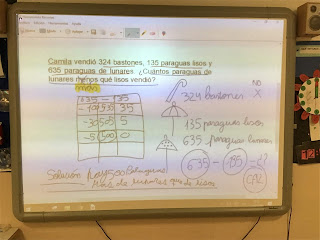 Camila vendió 324 bastones, 135 paraguas lisos y
635 paraguas de lunares. ¿Cuántos paraguas de
lunares menos qué lisos vendió?
más
NO
X
324 bastones
635 - 135
-100 535 35
-30 505 5
-5 500 0
135 paraguas lisos
635 paraguas lunares
635 - 135 = ¿?
Solución: 500
más de lunares que de lisos